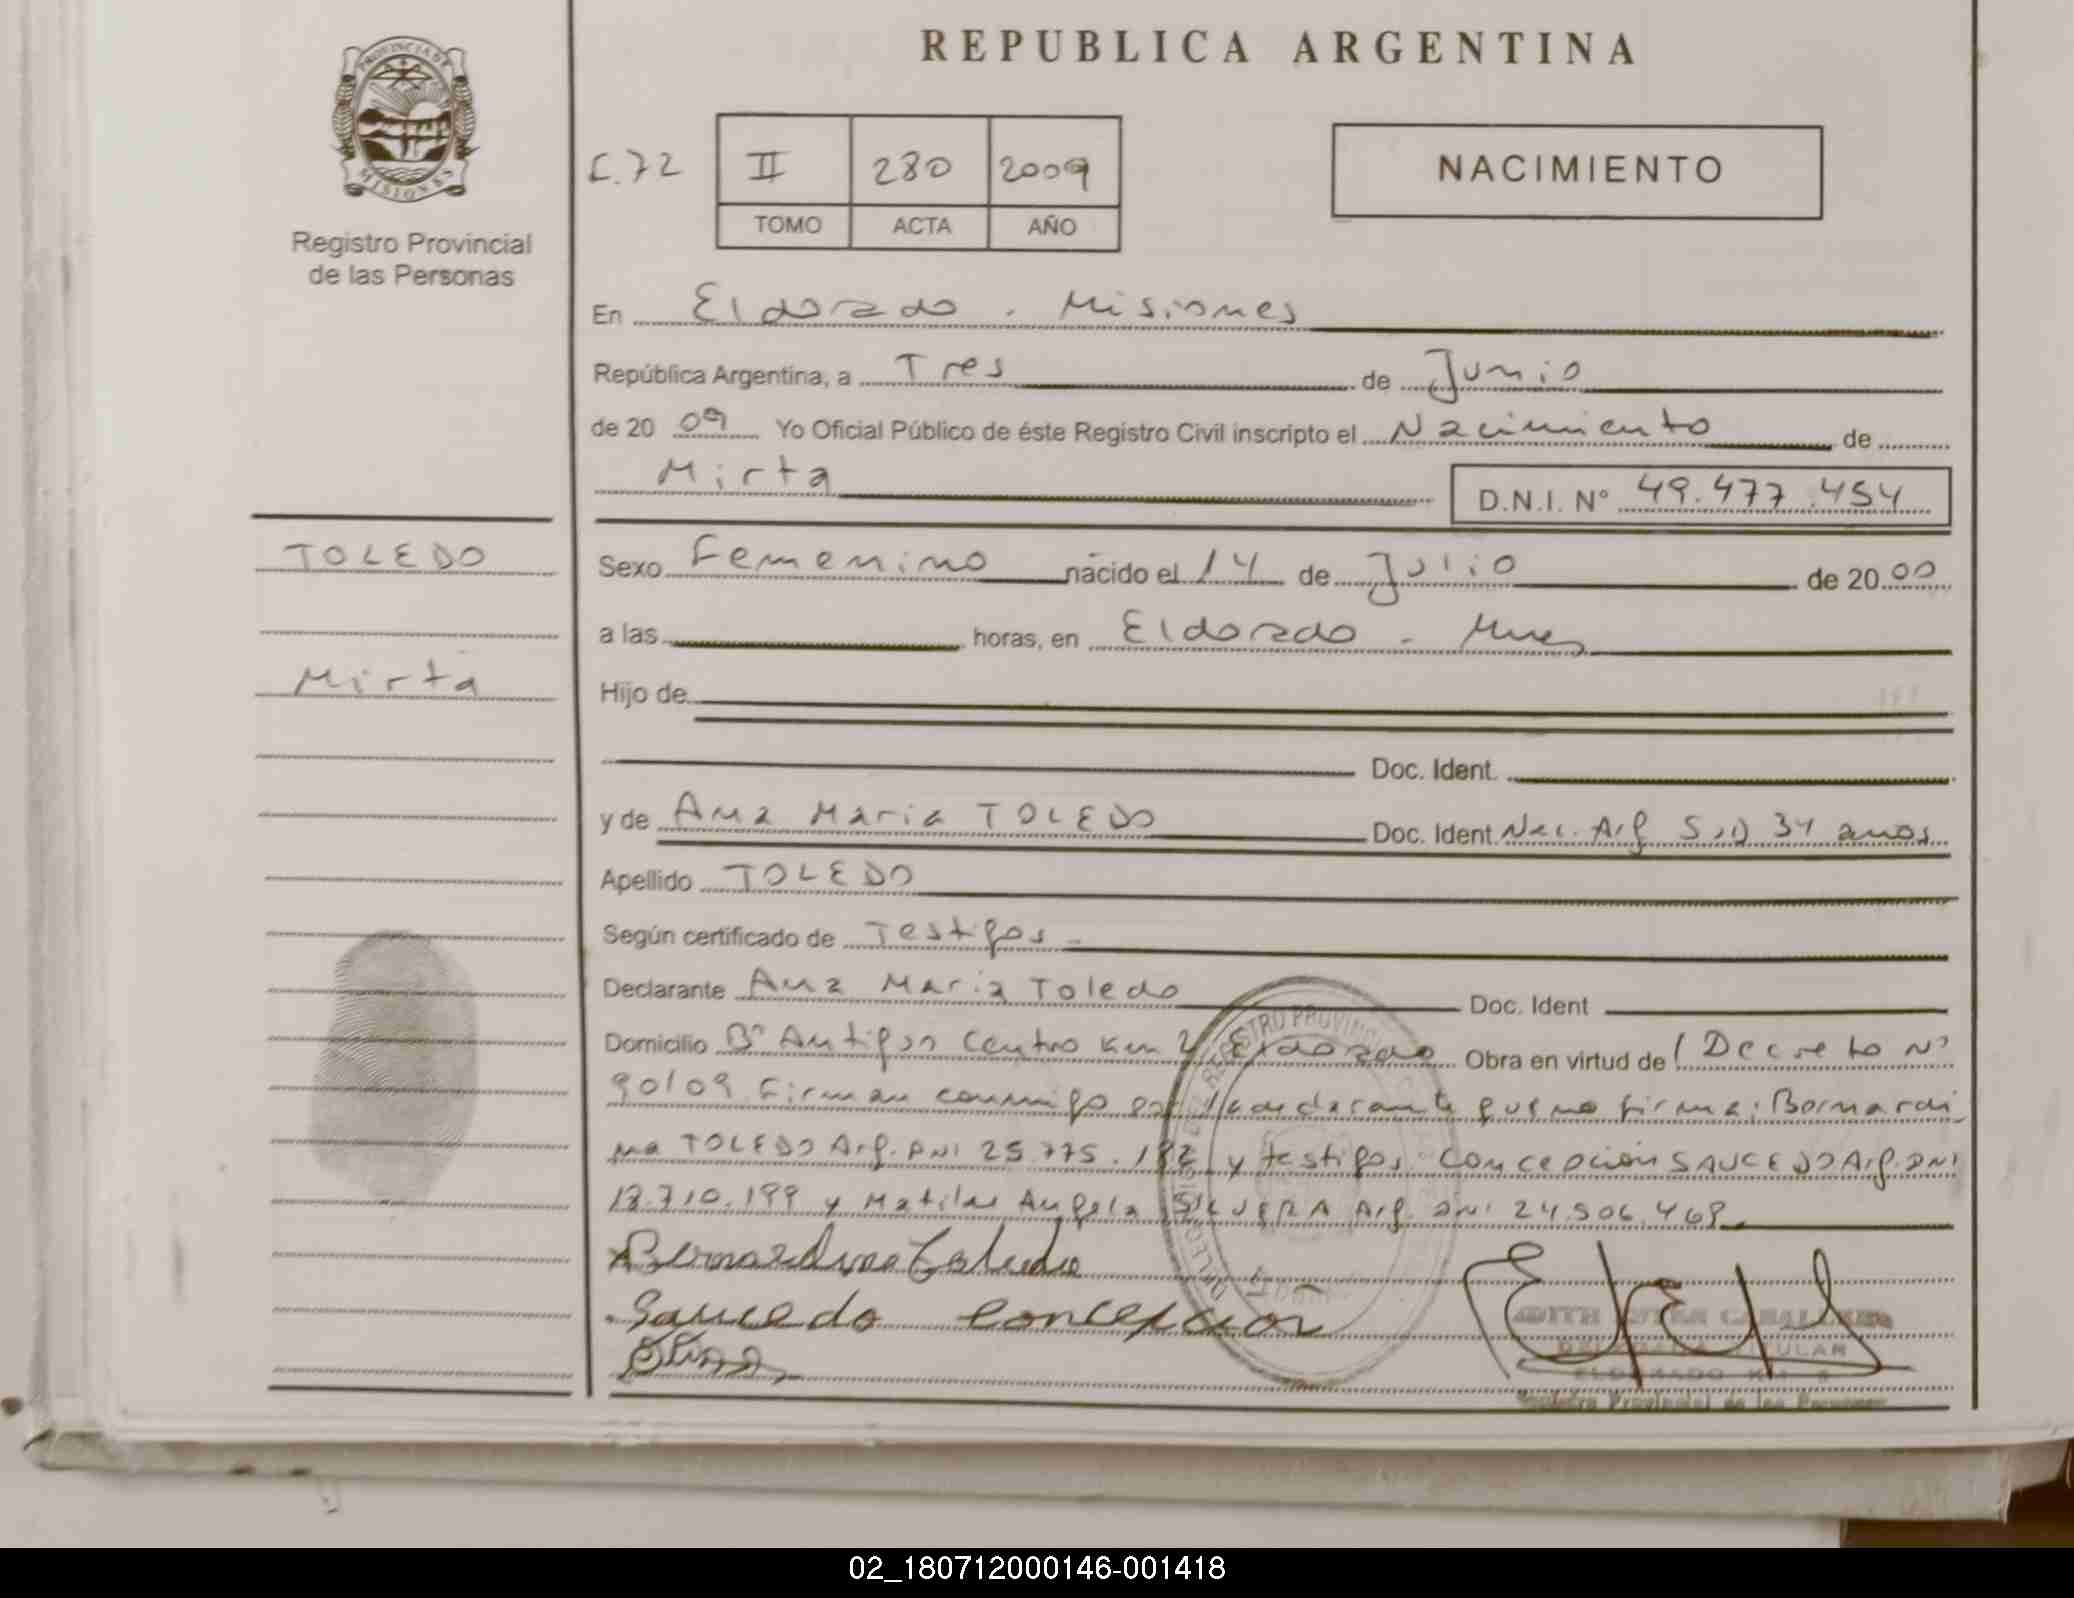 REPUBLICA ARGENTINA
PROVINCIA DE
MISIONES
Registro Provincial
de las Personas
C.72 II 280 2009
TOMO ACTA AÑO
NACIMIENTO
En Eldorado . Misiones
República Argentina, a Tres de Junio
de 2009 Yo Oficial Público de éste Registro Civil inscripto el Nacimiento de
Mirta D.N.I. N° 49.477.454
TOLEDO
Mirta
Sexo Femenino nácido el 14 de Julio de 2000
a las horas, en Eldorado - Mnes
Hijo de
Doc. Ident.
y de Ana Maria TOLEDO Doc. Ident. Nac. Arg S/D 34 anos
Apellido TOLEDO
Según certificado de Testigos
Declarante Ana Maria Toledo Doc. Ident
Domicilio B° Antiguo Centro Km 2 Eldorado Obra en virtud de Decreto N°
90/09. Firman conmigo por la declarante que no firma: Bernardi
na TOLEDO Arg. DNI 25.775.182 y testigos: Concepcion SAUCEDO Arg. DNI
18.710.199 y Matilde Angela SILVERA Arg. DNI 24.506.468
Bernardina Toledo
Saucedo Concepcion
DELEGADA TITULAR
ELDORADO KM
Registro Provincial de las Personas
02_180712000146-001418